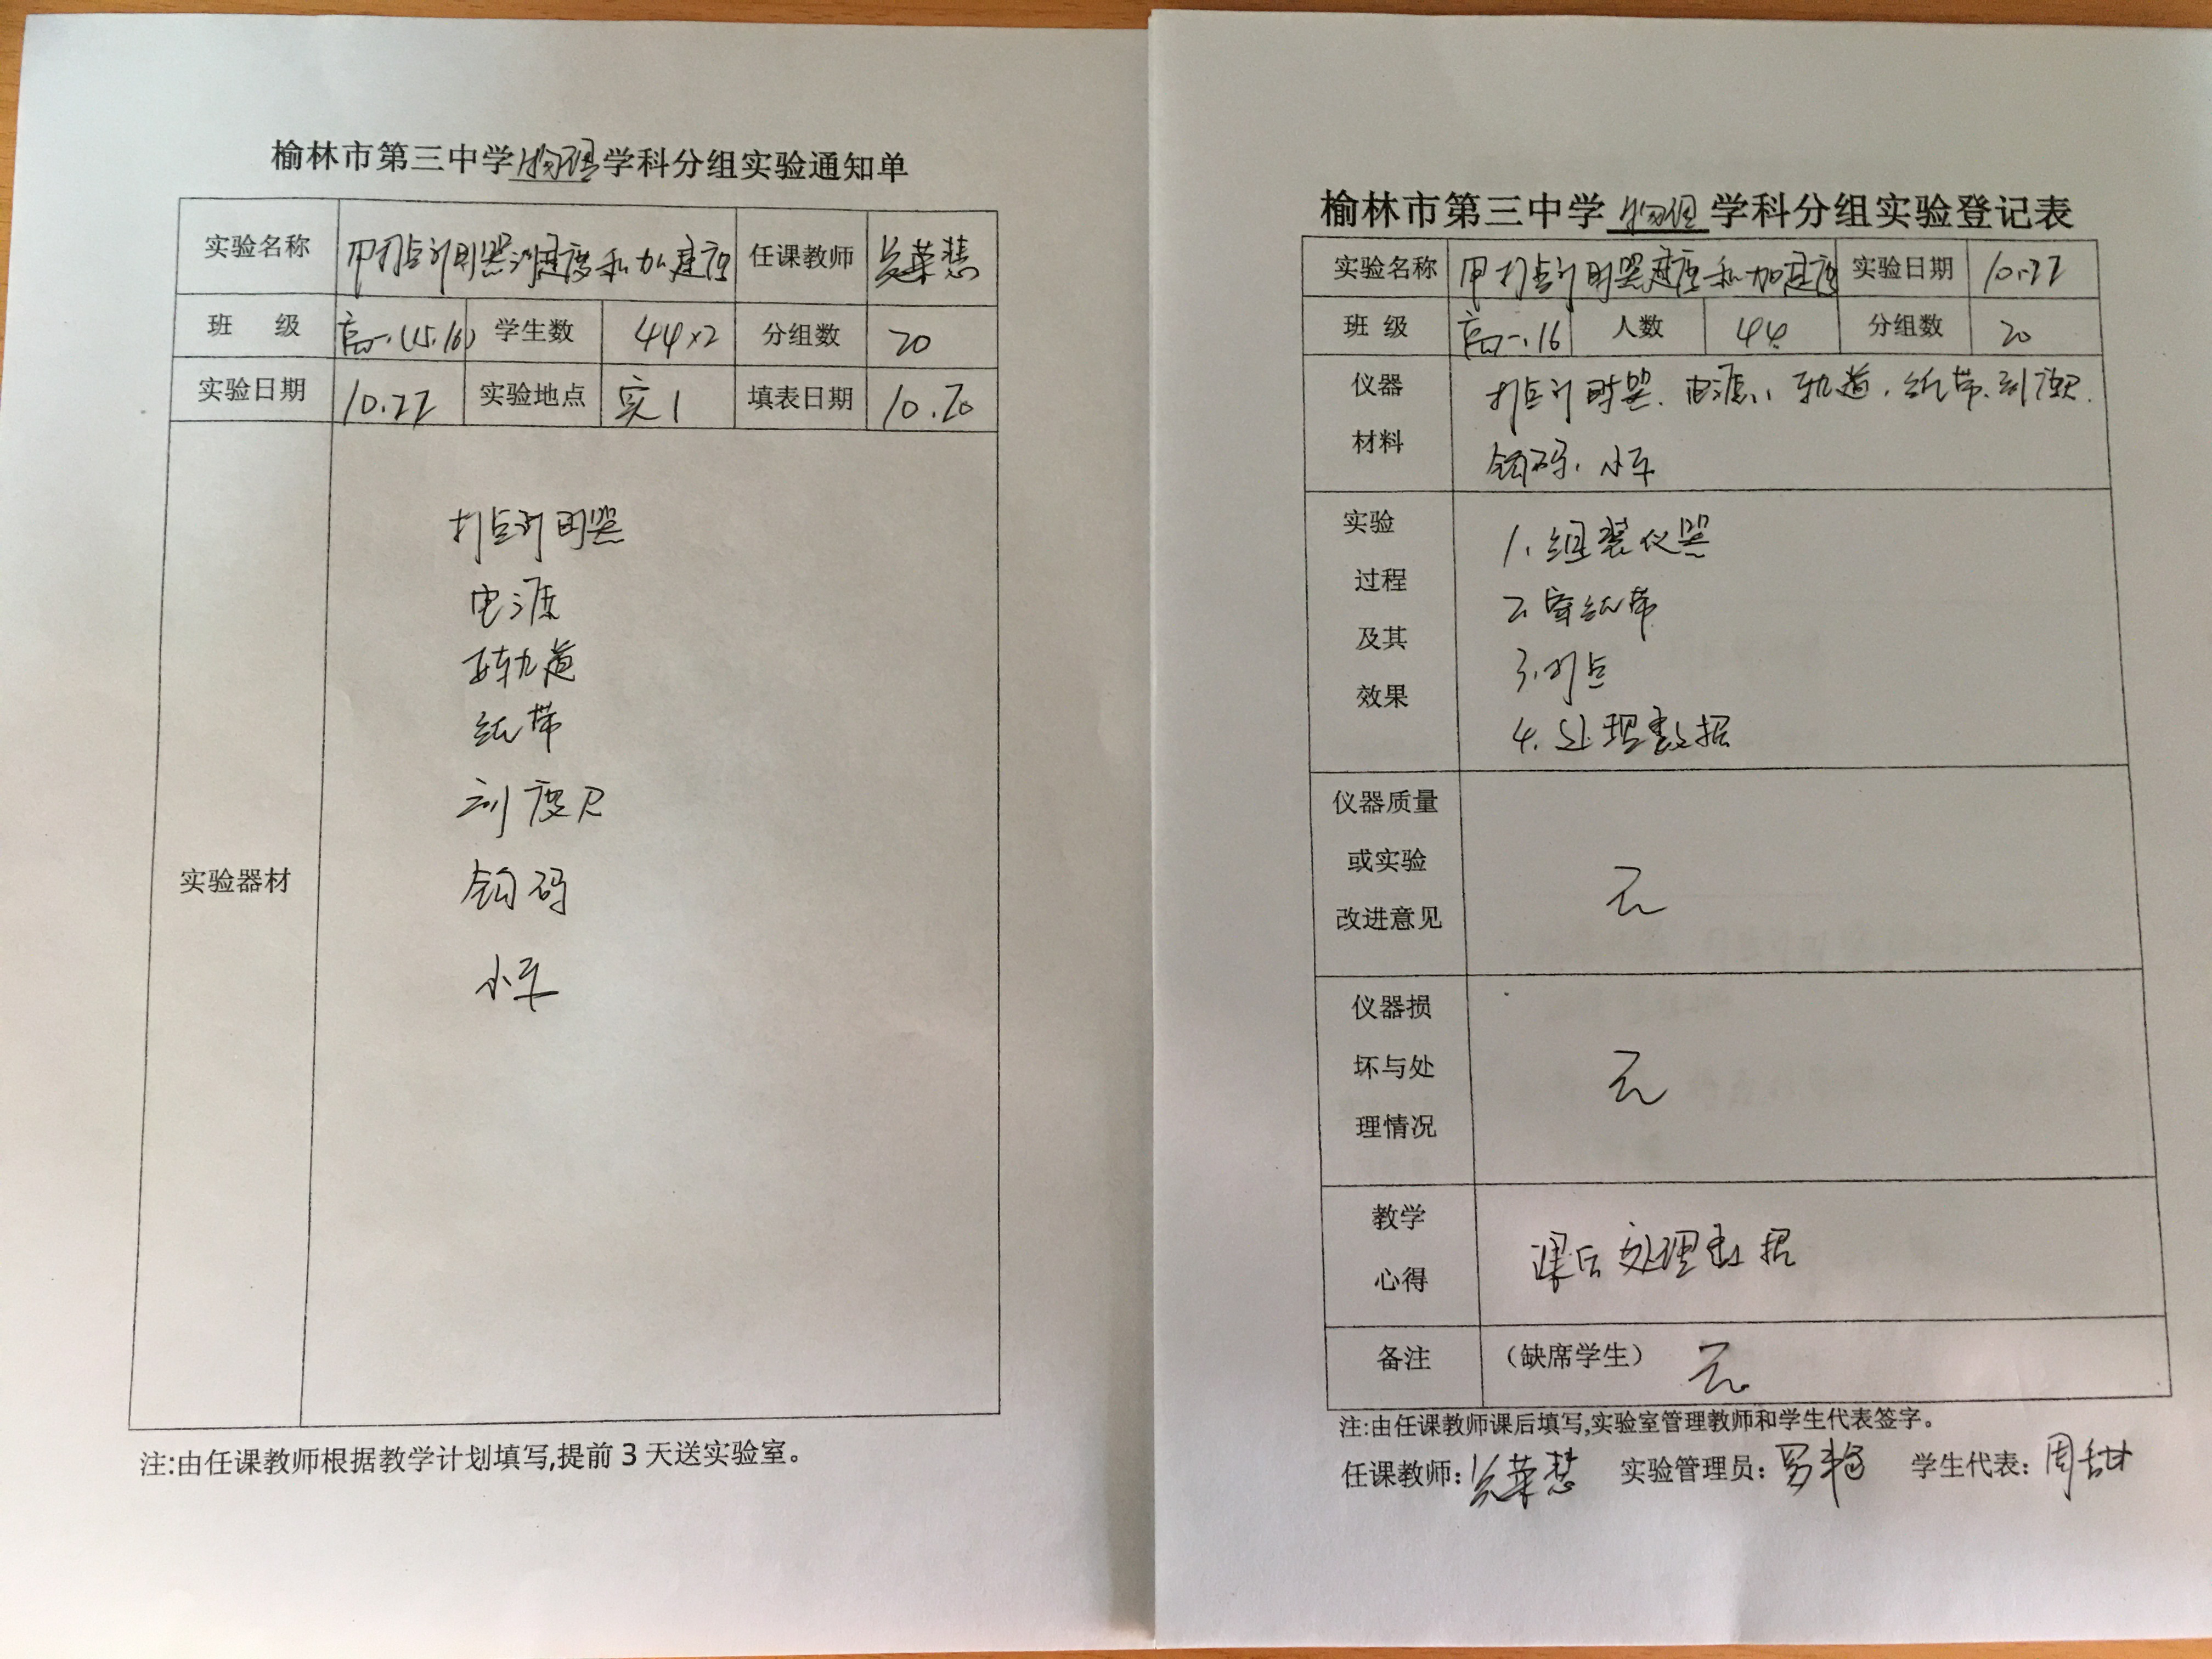 榆林市第三中学物理学科分组实验通知单
实验名称 用打点计时器测速度和加速度 任课教师
班 级 高一(15.16) 学生数 44×2 分组数 20
实验日期 10.22 实验地点 实1 填表日期 10.20
实验器材
打点计时器
电源
轨道
纸带
刻度尺
钩码
小车
注:由任课教师根据教学计划填写,提前3天送实验室。
榆林市第三中学物理学科分组实验登记表
实验名称 用打点计时器速度和加速度 实验日期 10.22
班 级 高一.16 人数 44 分组数 20
仪器材料 打点计时器、电源、轨道、纸带、刻度尺、
钩码、小车
实验过程及其效果
1、组装仪器
2、穿纸带
3、打点
4、处理数据
仪器质量或实验改进意见 无
仪器损坏与处理情况 无
教学心得 课后处理数据
备注 (缺席学生) 无
注:由任课教师课后填写,实验室管理教师和学生代表签字。
任课教师: 实验管理员: 学生代表:周甜